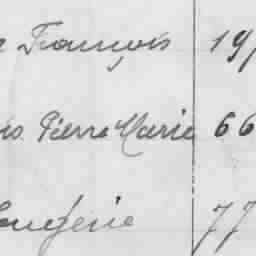 François 19
Pierre Marie 66
Eugénie 77